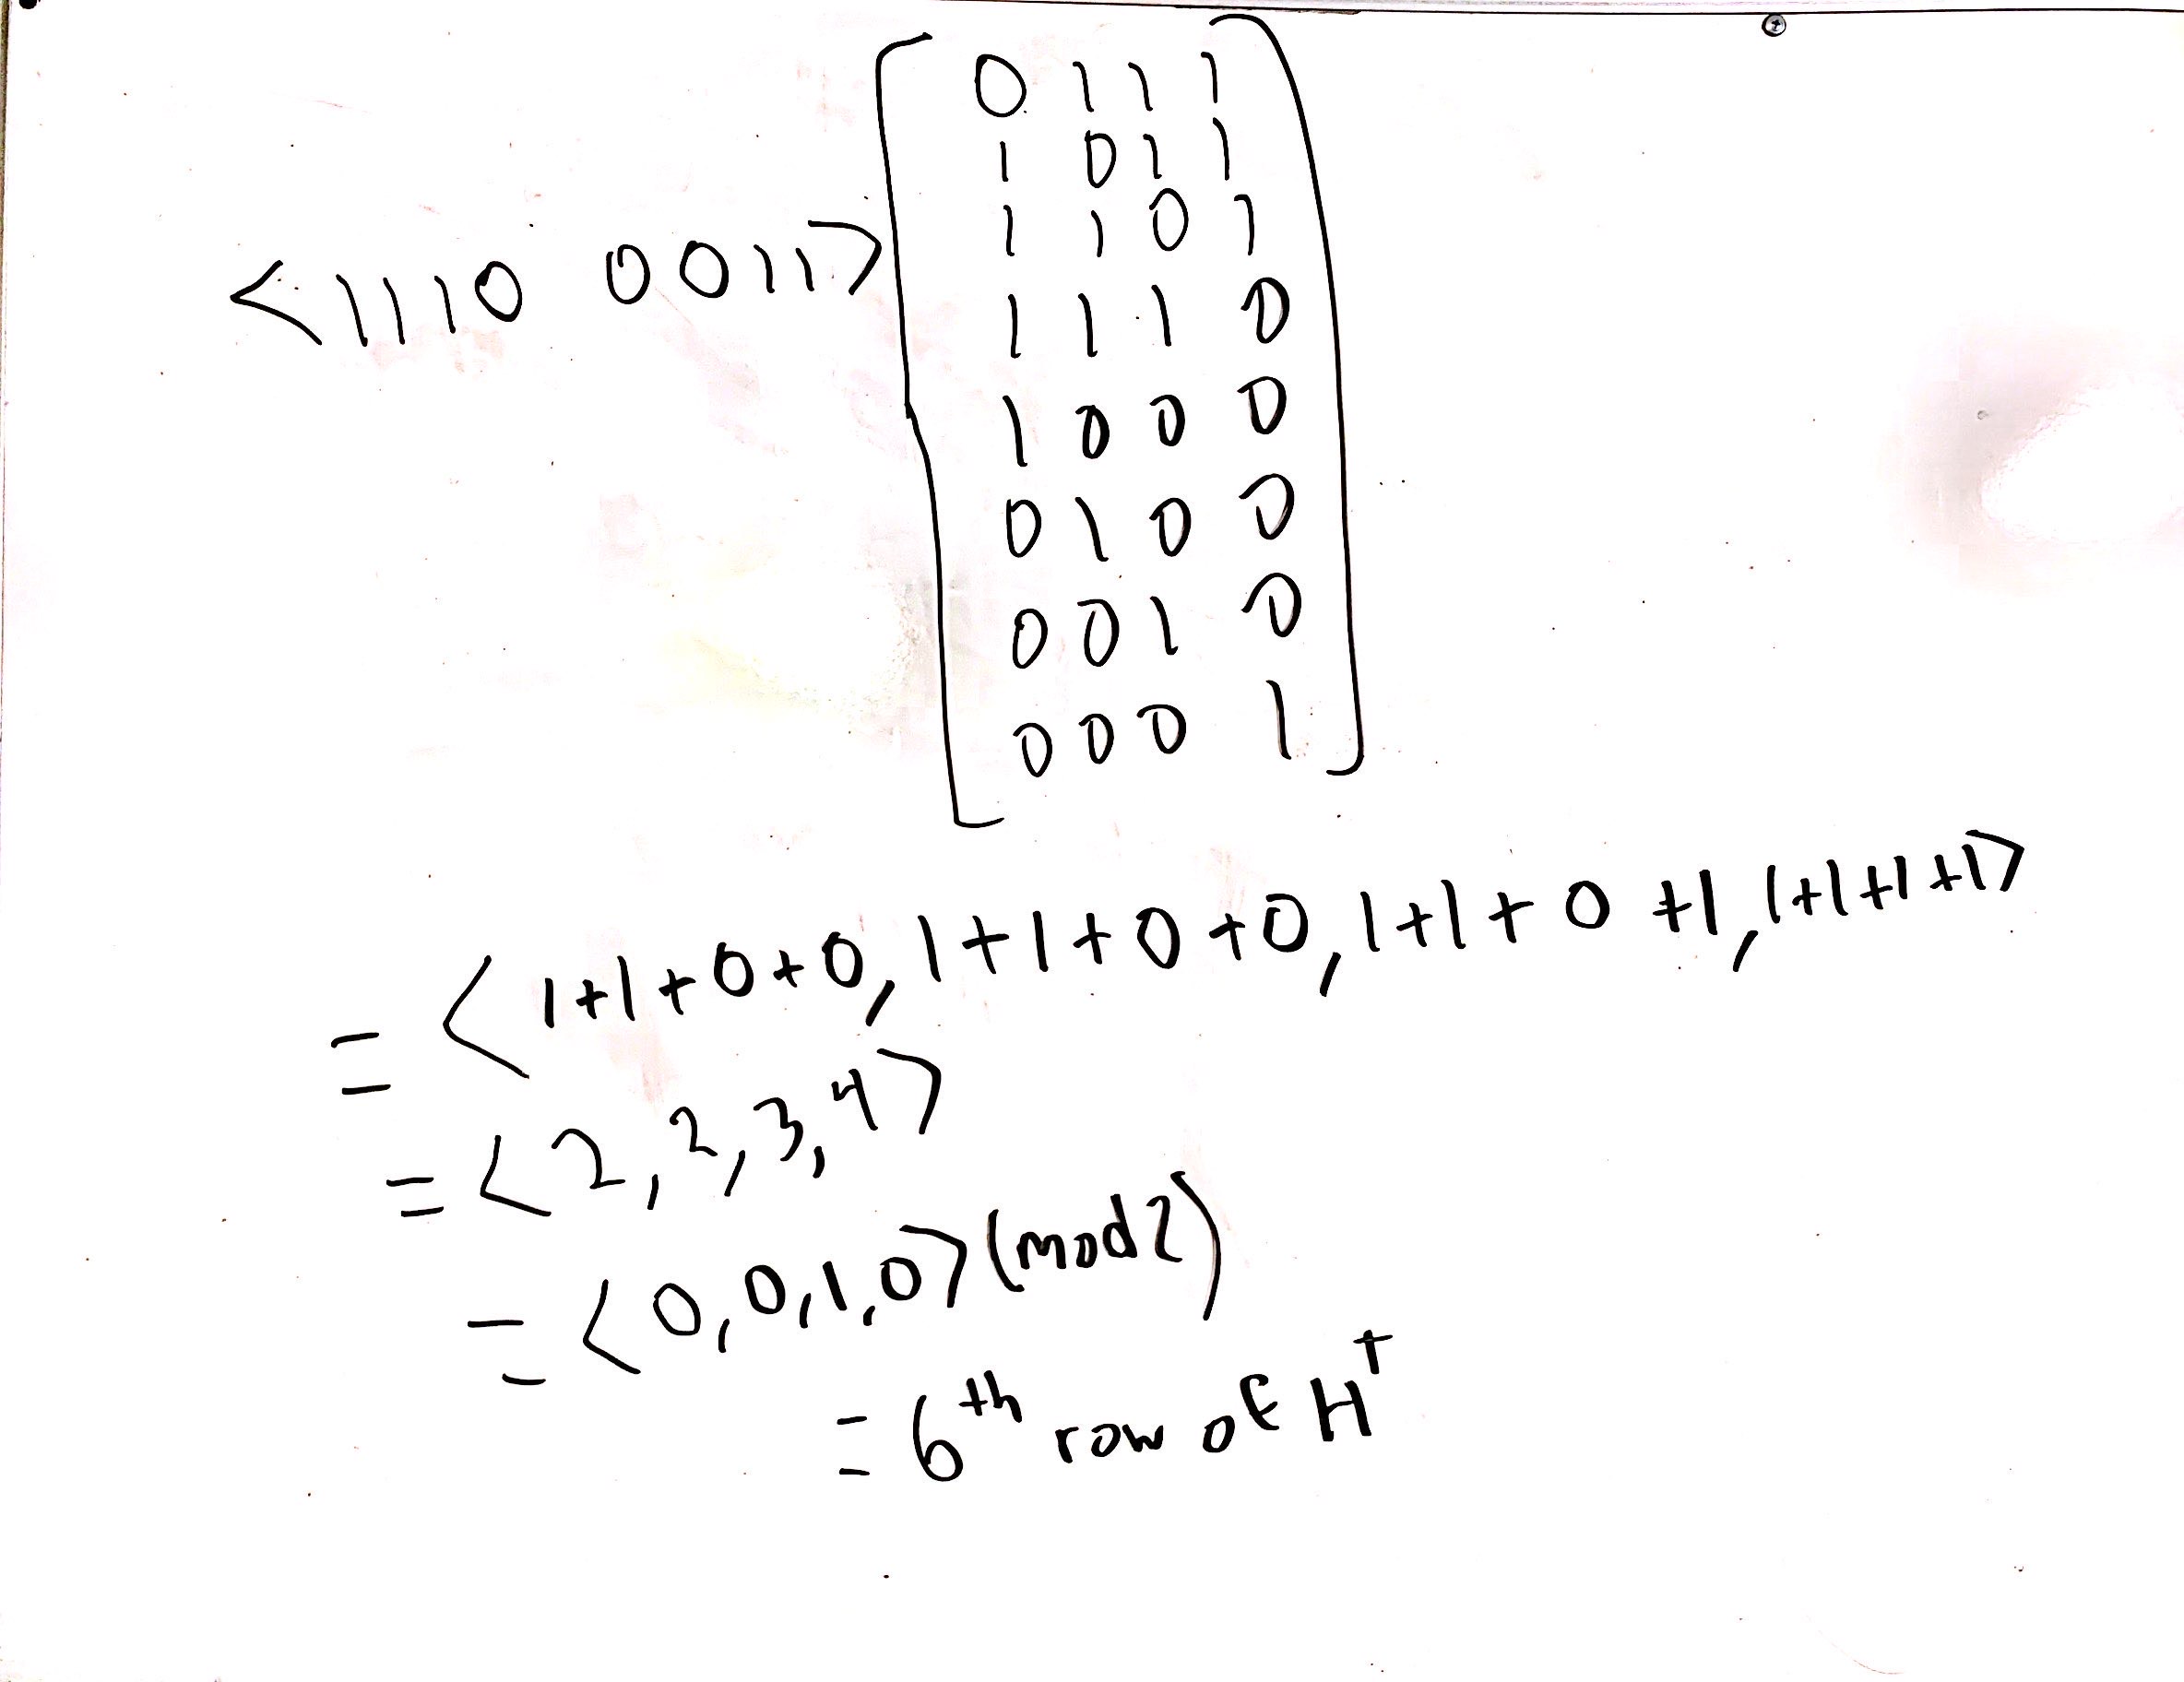 <1110 0011>
0 1 1 1
1 0 1 1
1 1 0 1
1 1 1 0
1 0 0 0
0 1 0 0
0 0 1 0
0 0 0 1
= <1+1+0+0, 1+1+0+0, 1+1+0+1, 1+1+1+1>
= <2, 2, 3, 4>
= <0, 0, 1, 0> (mod 2)
= 6th row of H^T